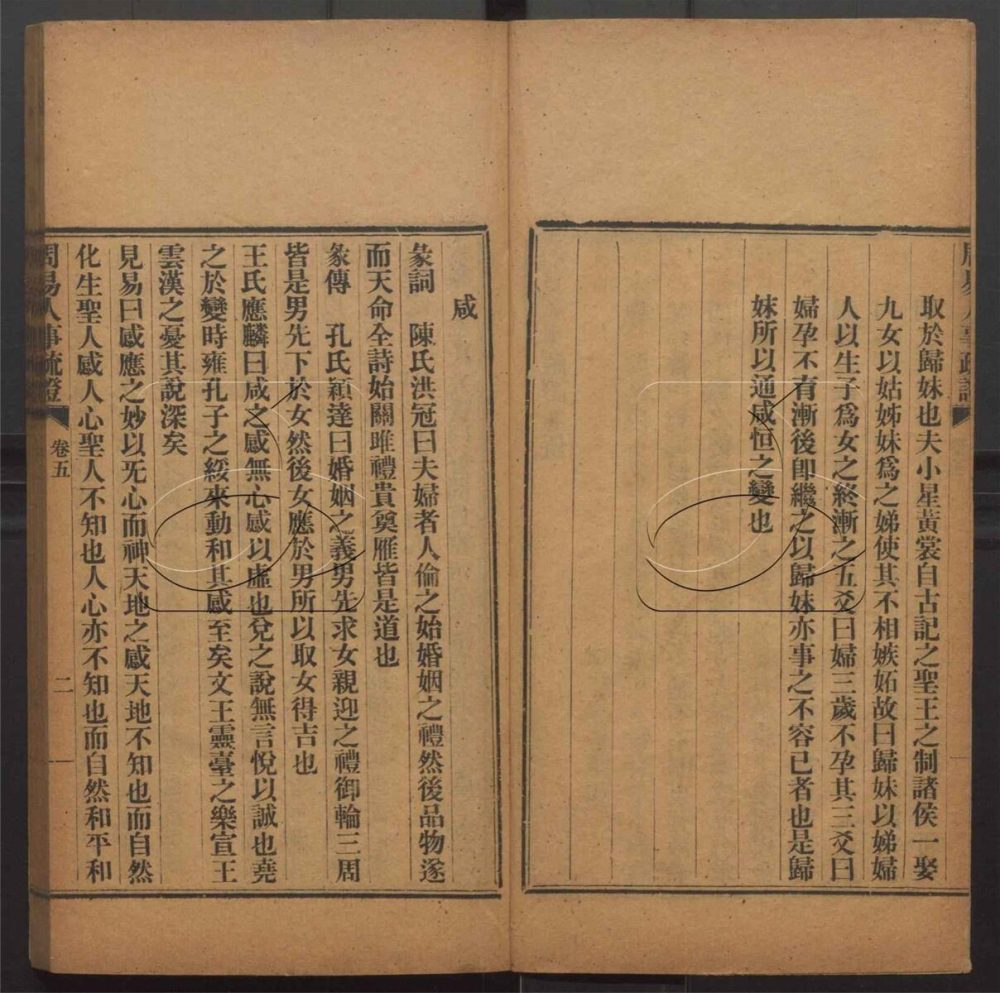 周易人事疏證
取於歸妹也夫小星黃裳自古記之聖王之制諸侯一娶
九女以姑姊妹爲之娣使其不相嫉妬故曰歸妹以娣婦
人以生子爲女之終漸之五爻曰婦三歲不孕其三爻曰
婦孕不育漸後卽繼之以歸妹亦事之不容已者也是歸
妹所以通咸恒之變也
咸
彖詞 陳氏洪冠曰夫婦者人倫之始婚姻之禮然後品物遂
而天命全詩始關雎禮貴奠雁皆是道也
彖傳 孔氏穎達曰婚姻之義男先求女親迎之禮御輪三周
皆是男先下於女然後女應於男所以取女得吉也
王氏應麟曰咸之感無心感以虛也兌之說無言悅以誠也堯
之於變時雍孔子之綏來動和其感至矣文王靈臺之樂宣王
雲漢之憂其說深矣
見易曰感應之妙以旡心而神天地之感天地不知也而自然
化生聖人感人心聖人不知也人心亦不知也而自然和平和
周易人事疏證
卷五
二